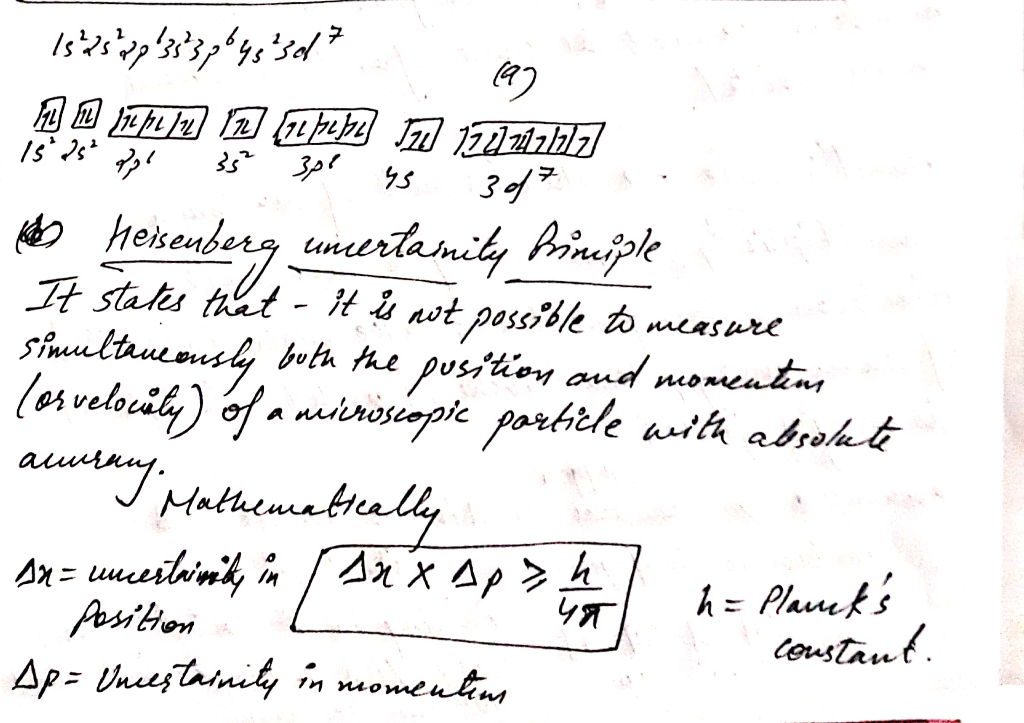 1s²2s²2p⁶3s²3p⁶4s²3d⁷
(a)
1s² 2s² 2p⁶ 3s² 3p⁶ 4s 3d⁷
(b) Heisenberg uncertainity Principle
It states that - it is not possible to measure
simultaneously both the position and momentum
(or velocity) of a microscopic particle with absolute
accuracy.
Mathematically
Δx = uncertainity in
Position
Δx × Δp ≥ h/4π
h = Planck's
constant.
Δp = Uncertainity in momentum